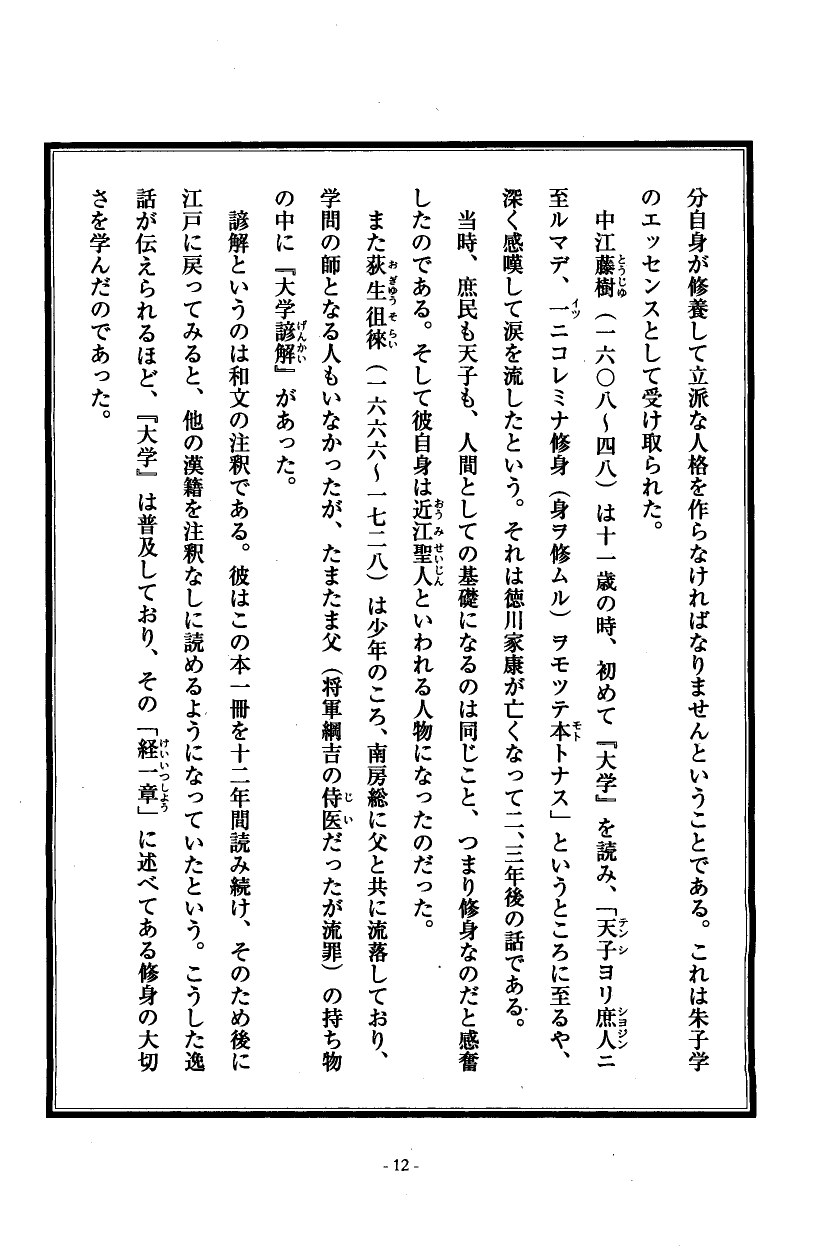 分自身が修養して立派な人格を作らなければなりませんということである。これは朱子学
のエッセンスとして受け取られた。
中江藤樹（一六〇八～四八）は十一歳の時、初めて『大学』を読み、「天子ヨリ庶人ニ
至ルマデ、一ニコレミナ修身（身ヲ修ムル）ヲモツテ本トナス」というところに至るや、
深く感嘆して涙を流したという。それは徳川家康が亡くなって二、三年後の話である。
当時、庶民も天子も、人間としての基礎になるのは同じこと、つまり修身なのだと感奮
したのである。そして彼自身は近江聖人といわれる人物になったのだった。
また荻生徂徠（一六六六～一七二八）は少年のころ、南房総に父と共に流落しており、
学問の師となる人もいなかったが、たまたま父（将軍綱吉の侍医だったが流罪）の持ち物
の中に『大学諺解』があった。
諺解というのは和文の注釈である。彼はこの本一冊を十二年間読み続け、そのため後に
江戸に戻ってみると、他の漢籍を注釈なしに読めるようになっていたという。こうした逸
話が伝えられるほど、『大学』は普及しており、その「経一章」に述べてある修身の大切
さを学んだのであった。
- 12 -